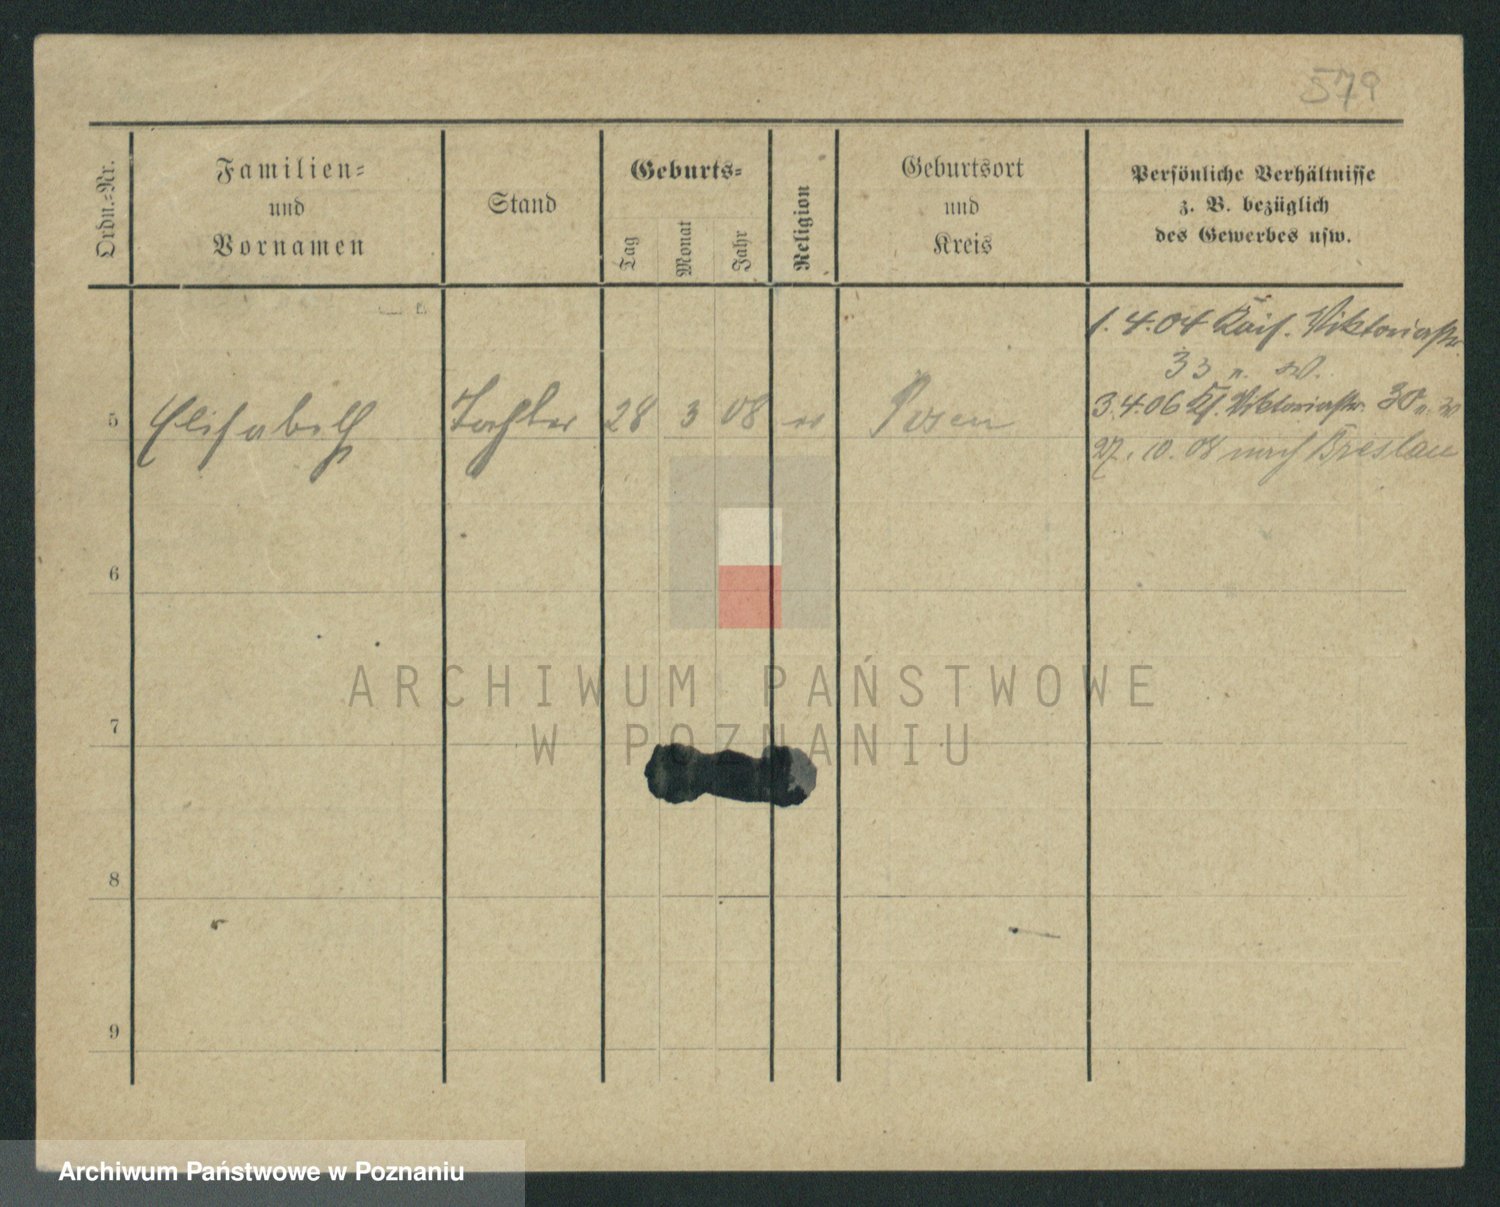 579
Ordn.-Nr.
Familien-
und
Vornamen
Stand
Geburts-
Tag
Monat
Jahr
Religion
Geburtsort
und
Kreis
Persönliche Verhältnisse
z. B. bezüglich
des Gewerbes usw.
1. 4. 04 Kais. Viktoriastr.
33 n. w.
5 Elisabeth Tochter 28 3 08 Posen
3. 4. 06 Ks. Viktoriastr. 30 n. w
27. 10. 08 nach Breslau
6
ARCHIWUM PAŃSTWOWE
7
W POZNANIU
8
9
Archiwum Państwowe w Poznaniu